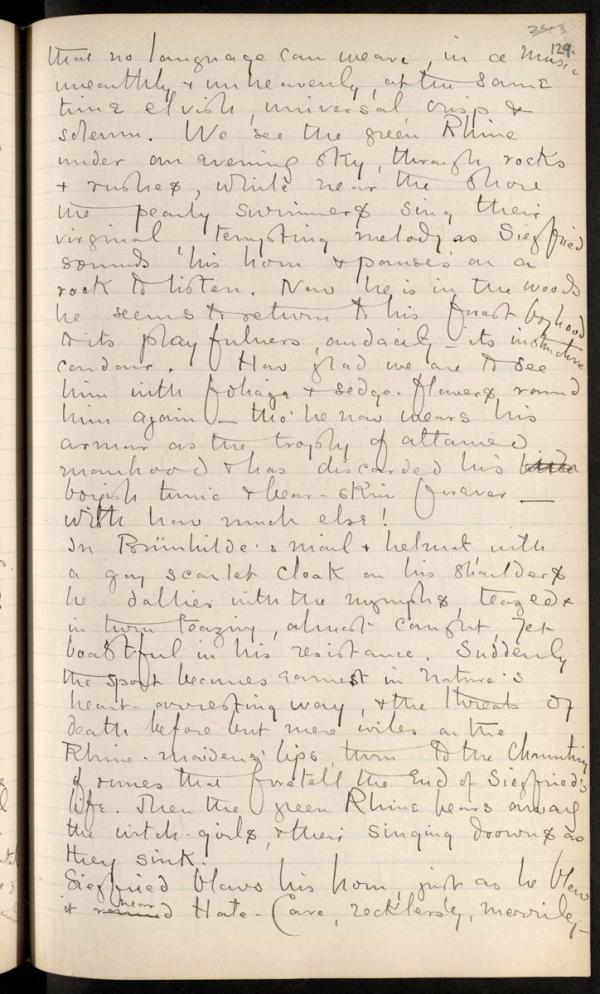 129.
that no language can weave, in a music
unearthly & unheavenly, at the same
time elvish, universal crisp &
solemn. We see the green Rhine
under an evening sky, through rocks
& rushes, while near the shore
the pearly swimmers sing their
virginal, tempting melody as Siegfried
sounds his horn & pauses on a
rock to listen. Now he is in the woods
he seems to return to his forest boyhood
& its playfulness, audacity – its instinctive
candour. How glad we are to see
him with foliage & sedge-flowers round
him again – tho' he now wears his
armour as the trophy of attained
manhood & has discarded his
boyish tunic & bear-skin forever —
with how much else!
In Brünhilde's mail & helmet with
a gay scarlet cloak on his shoulders
he dallies with the nymphs, teazed &
in turn teazing, almost caught, yet
boastful in his resistance. Suddenly
the sport becomes earnest in Nature's
heart-arresting way, & the threats of
death before but mere wiles on the
Rhine-maidens' lips, turn to the chaunting
of runes that foretell the End of Siegfried's
life. Then the green Rhine bears away
the witch-girls, & their singing drowns as
they sink.
Siegfried blows his horn, just as he blew
it near Hate-Cave, recklessly, merrily –